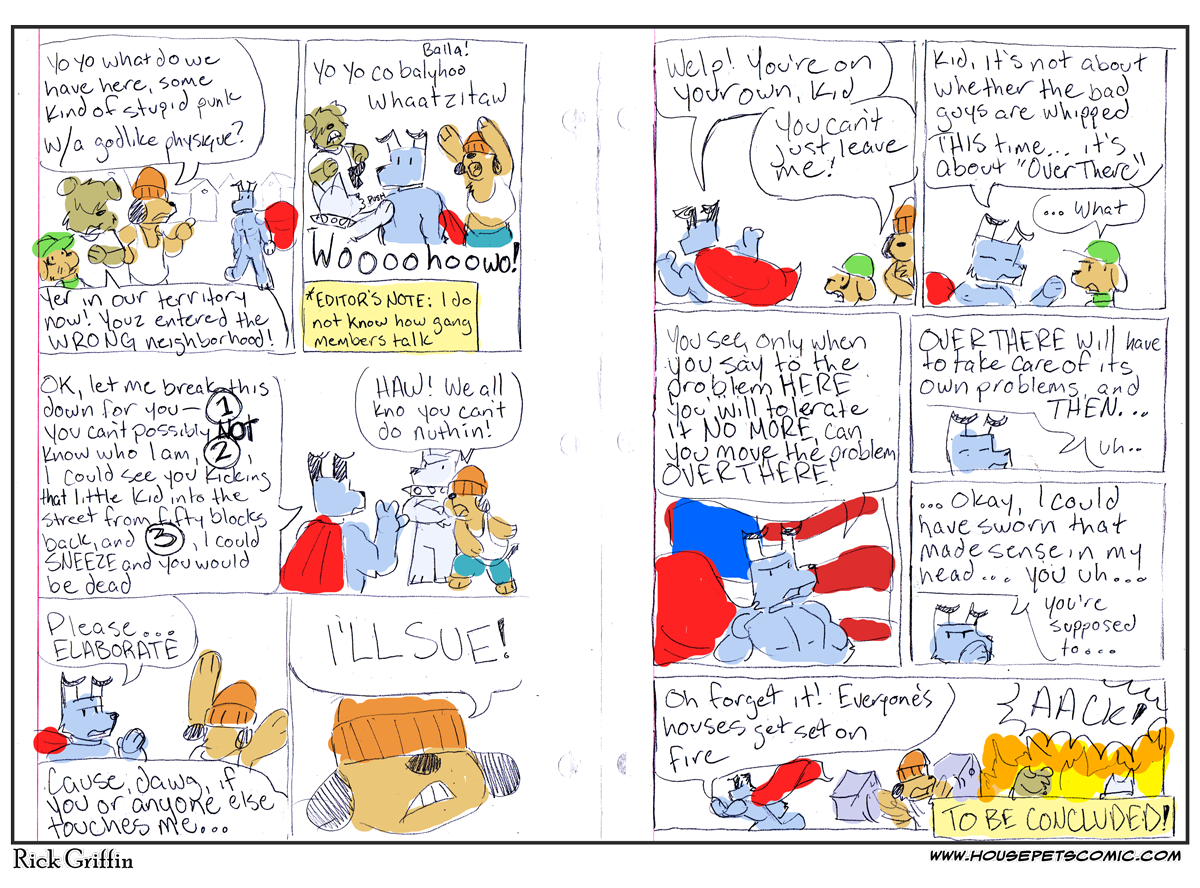 Yo Yo what do we
have here, some
kind of stupid punk
w/a godlike physique?
Yer in our territory
now! Youz entered the
WRONG neighborhood!
Balla!
Yo Yo co balyhoo
Whaatzitaw
PUSH
Woooohoowo!
*EDITOR'S NOTE: I do
not know how gang
members talk
OK, let me break this
down for you— 1
You can't possibly NOT
know who I am, 2,
I could see you kicking
that little kid into the
street from fifty blocks
back, and 3, I could
SNEEZE and you would
be dead
HAW! We all
kno you can't
do nuthin!
Please...
ELABORATE
Cause, dawg, if
you or anyone else
touches me...
I'LL SUE!
Welp! You're on
your own, kid
You can't
just leave
me!
Kid, it's not about
whether the bad
guys are whipped
THIS time... it's
about "Over There"
... What
You see, only when
you say to the
problem HERE
you will tolerate
it NO MORE, can
you move the problem
OVER THERE!
OVER THERE will have
to take care of its
own problems, and
THEN...
uh..
...Okay, I could
have sworn that
made sense in my
head... you uh...
you're
supposed
to....
Oh forget it! Everyone's
houses get set on
fire
AACK!
TO BE CONCLUDED!
Rick Griffin
WWW.HOUSEPETSCOMIC.COM